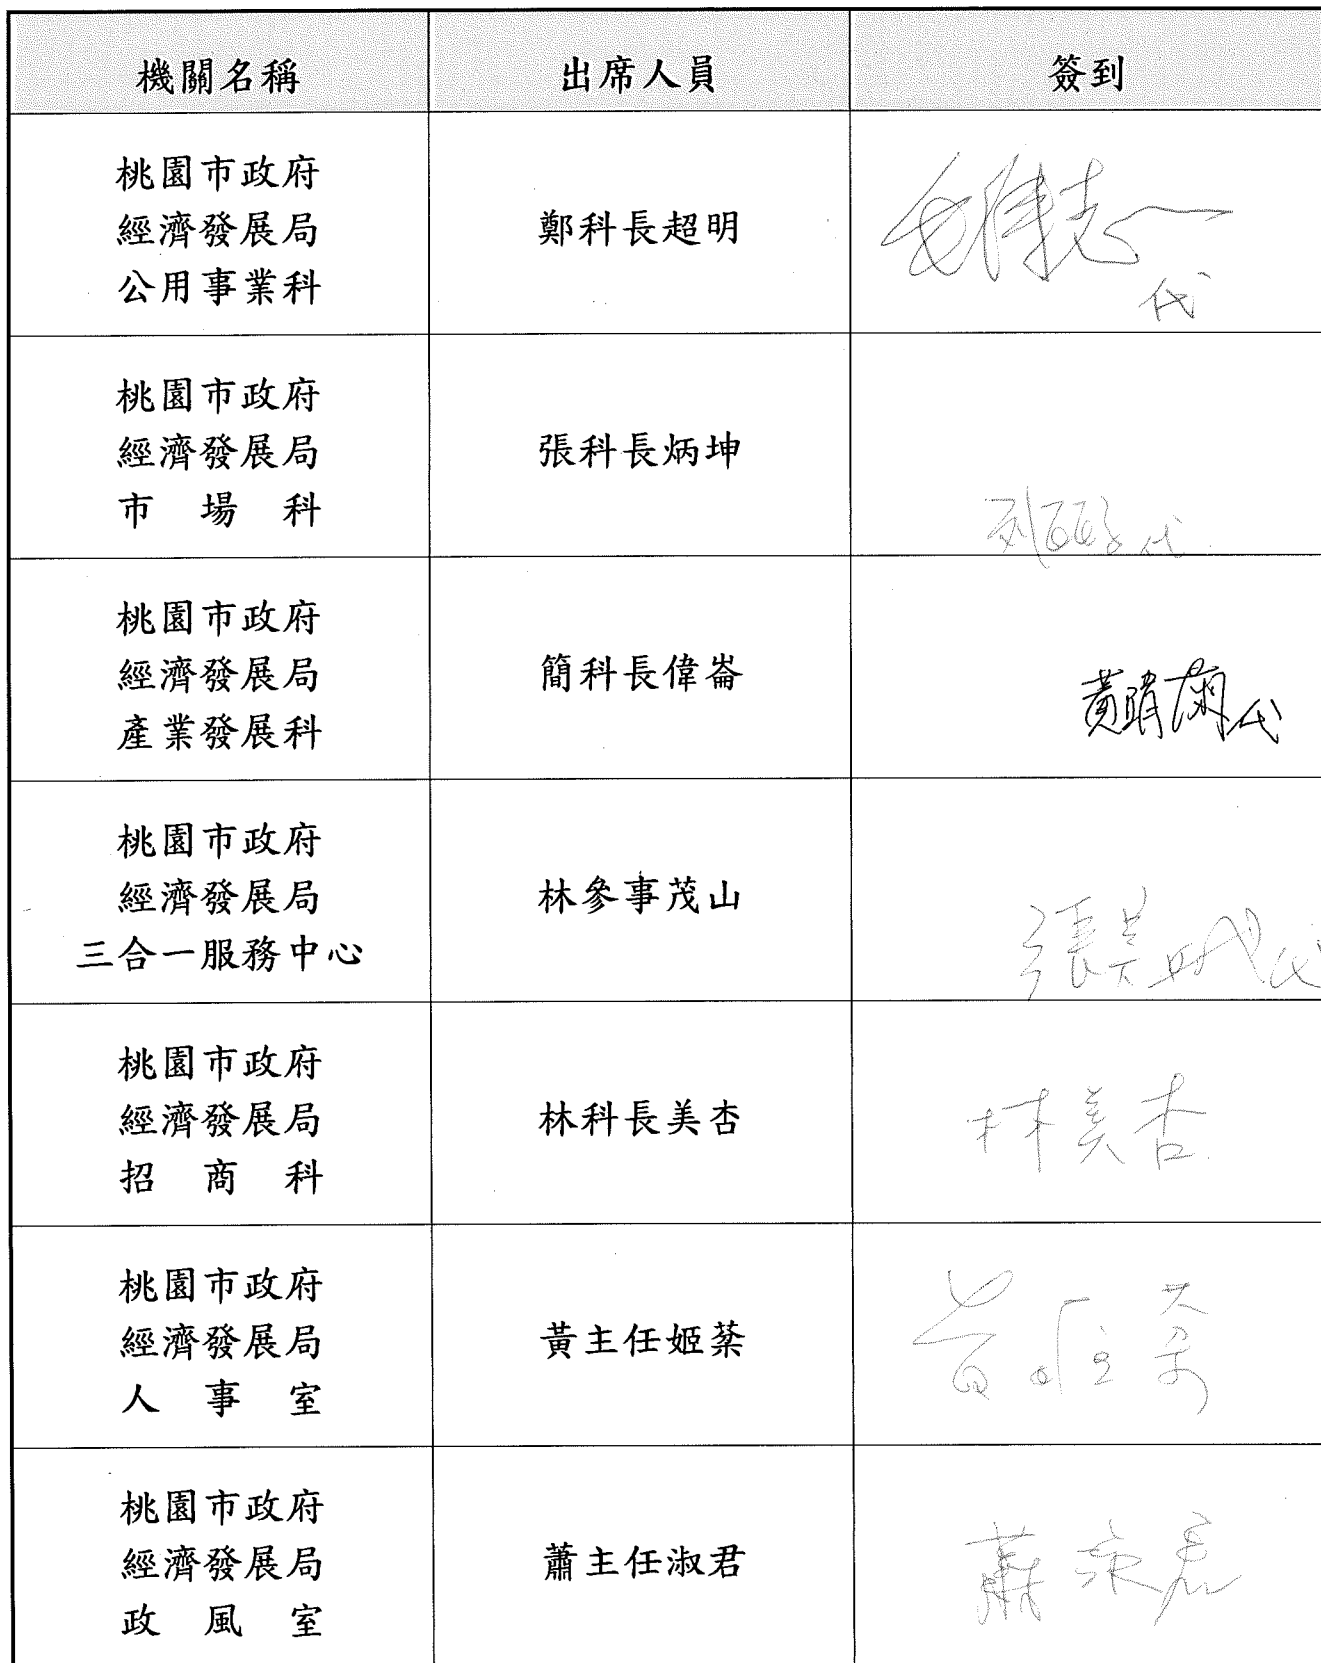 機關名稱 出席人員 簽到
桃園市政府
經濟發展局
公用事業科
鄭科長超明
代
桃園市政府
經濟發展局
市場科
張科長炳坤
代
桃園市政府
經濟發展局
產業發展科
簡科長偉崙
代
桃園市政府
經濟發展局
三合一服務中心
林參事茂山
代
桃園市政府
經濟發展局
招商科
林科長美杏
林美杏
桃園市政府
經濟發展局
人事室
黃主任姬棻
桃園市政府
經濟發展局
政風室
蕭主任淑君
蕭淑君